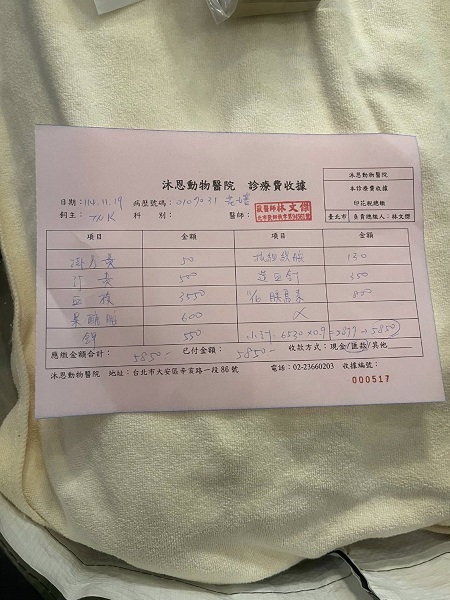 沐恩動物醫院 診療費收據
沐恩動物醫院
本診療費收據
印花稅總繳
臺北市 負責總繳人:林文傑
日期:114.11.19 病歷號碼:0109031
獸醫師林文傑
飼主:TNR 科別: 醫師:
項目 金額 項目 金額
掛号費 50 130
500 350
血檢 3550 800
果酸 600 X
針 550 6530×0.9=5877→5850
應繳金額合計:5850- 已付金額:5850- 收款方式:現金/匯款/其他
沐恩動物醫院 地址:台北市大安區辛亥路一段86號 電話:02-23660203 收據編號:
000517